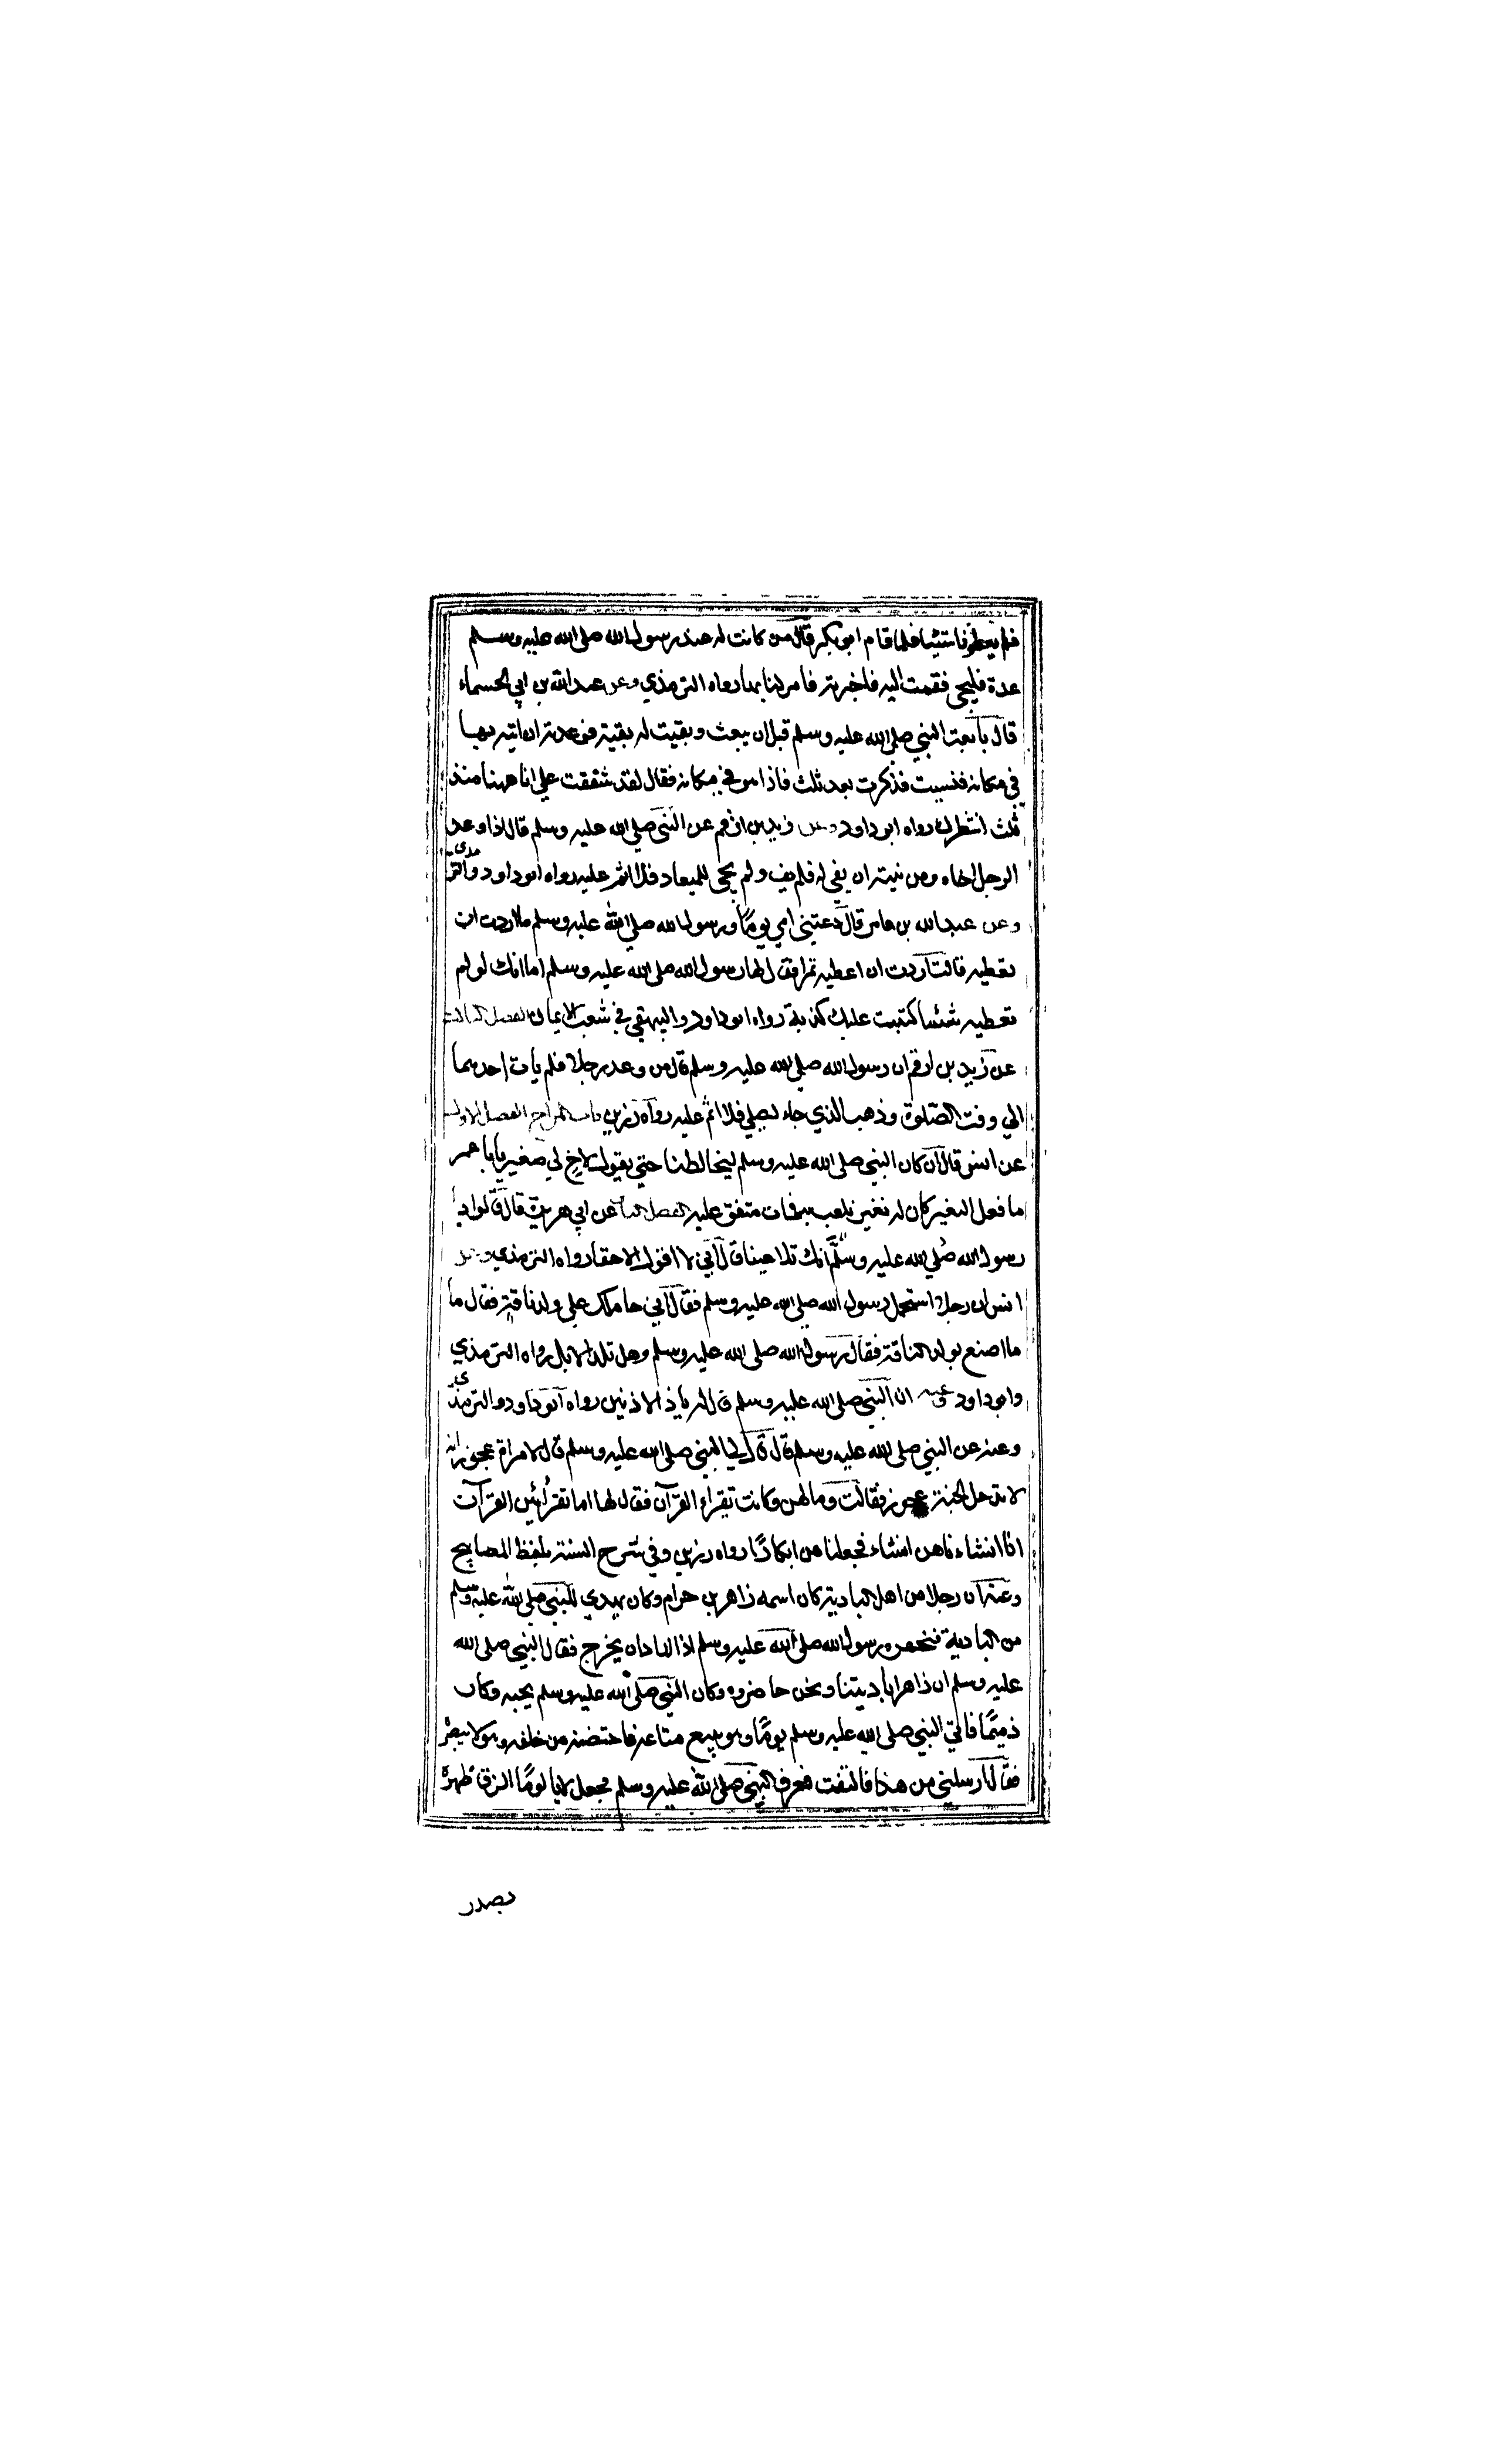 فلم يعطونا شيئا فلما قام ابو بكر قال من كانت له عند رسول الله صلى الله عليه وسلم
عدة فليجي فقمت اليه فاخبرته فامر لنا بها رواه الترمذي وعن عبد الله بن ابي الحسماء
قال بايعت النبي صلى الله عليه وسلم قبل ان يبعث وبقيت له بقية فوعدته ان اتيه بها
في مكانه فنسيت فذكرت بعد ثلث فاذا هو في مكانه فقال لقد شققت علي انا ههنا منذ
ثلث انتظرك رواه ابو داود وعن زيد بن ارقم عن النبي صلى الله عليه وسلم قال اذا وعد
الرجل اخاه ومن نيته ان يفي له فلم يف ولم يجي للميعاد فلا اثم عليه رواه ابو داود والترمذي
وعن عبد الله بن عامر قال دعتني امي يوما ورسول الله صلى الله عليه وسلم ما اردت ان
تعطيه قالت اردت ان اعطيه تمرا فقال لها رسول الله صلى الله عليه وسلم اما انك لو لم
تعطيه شيئا كتبت عليك كذبة رواه ابو داود والبيهقي في شعب الايمان الفصل الثالث
عن زيد بن ارقم ان رسول الله صلى الله عليه وسلم قال من وعد رجلا فلم يات احدهما
الي وقت الصلوة وذهب الذي جاء ليصلي فلا اثم عليه رواه رزين باب المزاح الفصل الاول
عن انس قال ان كان النبي صلى الله عليه وسلم ليخالطنا حتي يقول لاخ لي صغير يابا عمر
ما فعل النغير كان له نغير يلعب به فمات متفق عليه الفصل الثاني عن ابي هريرة قال قالوا يا
رسول الله صلي الله عليه وسلم انك تداعبنا قال اني لا اقول الا حقا رواه الترمذي وعن
انس ان رجلا استحمل رسول الله صلى الله عليه وسلم فقال اني حاملك علي ولد ناقة فقال ما
ما اصنع بولد الناقة فقال رسول الله صلى الله عليه وسلم وهل تلد الابل رواه الترمذي
وابو داود وعنه ان النبي صلى الله عليه وسلم قال له يا ذا الاذنين رواه ابو داود والترمذي
وعنه عن النبي صلى الله عليه وسلم قال قال النبي صلى الله عليه وسلم قال لامراة عجوز انه
لا تدخل الجنة عجوز فقالت وما لهن وكانت تقراء القرآن فقال لها اما تقرئين القرآن
انا انشاءناهن انشاء فجعلناهن ابكارا رواه رزين وفي شرح السنة بلفظ المصابيح
وعنه ان رجلا من اهل البادية كان اسمه زاهر بن حرام وكان يهدي للنبي صلى الله عليه وسلم
من البادية فيجهزه رسول الله صلى الله عليه وسلم اذا اراد ان يخرج فقال النبي صلى الله
عليه وسلم ان زاهرا باديتنا ونحن حاضروه وكان النبي صلى الله عليه وسلم يحبه وكان
ذميما فاتي النبي صلى الله عليه وسلم يوما وهو يبيع متاعه فاحتضنه من خلفه وهو لا يبصر
فقال ارسلني من هذا فالتفت فعرف النبي صلى الله عليه وسلم فجعل لا يالو ما الزق ظهره
بصدر